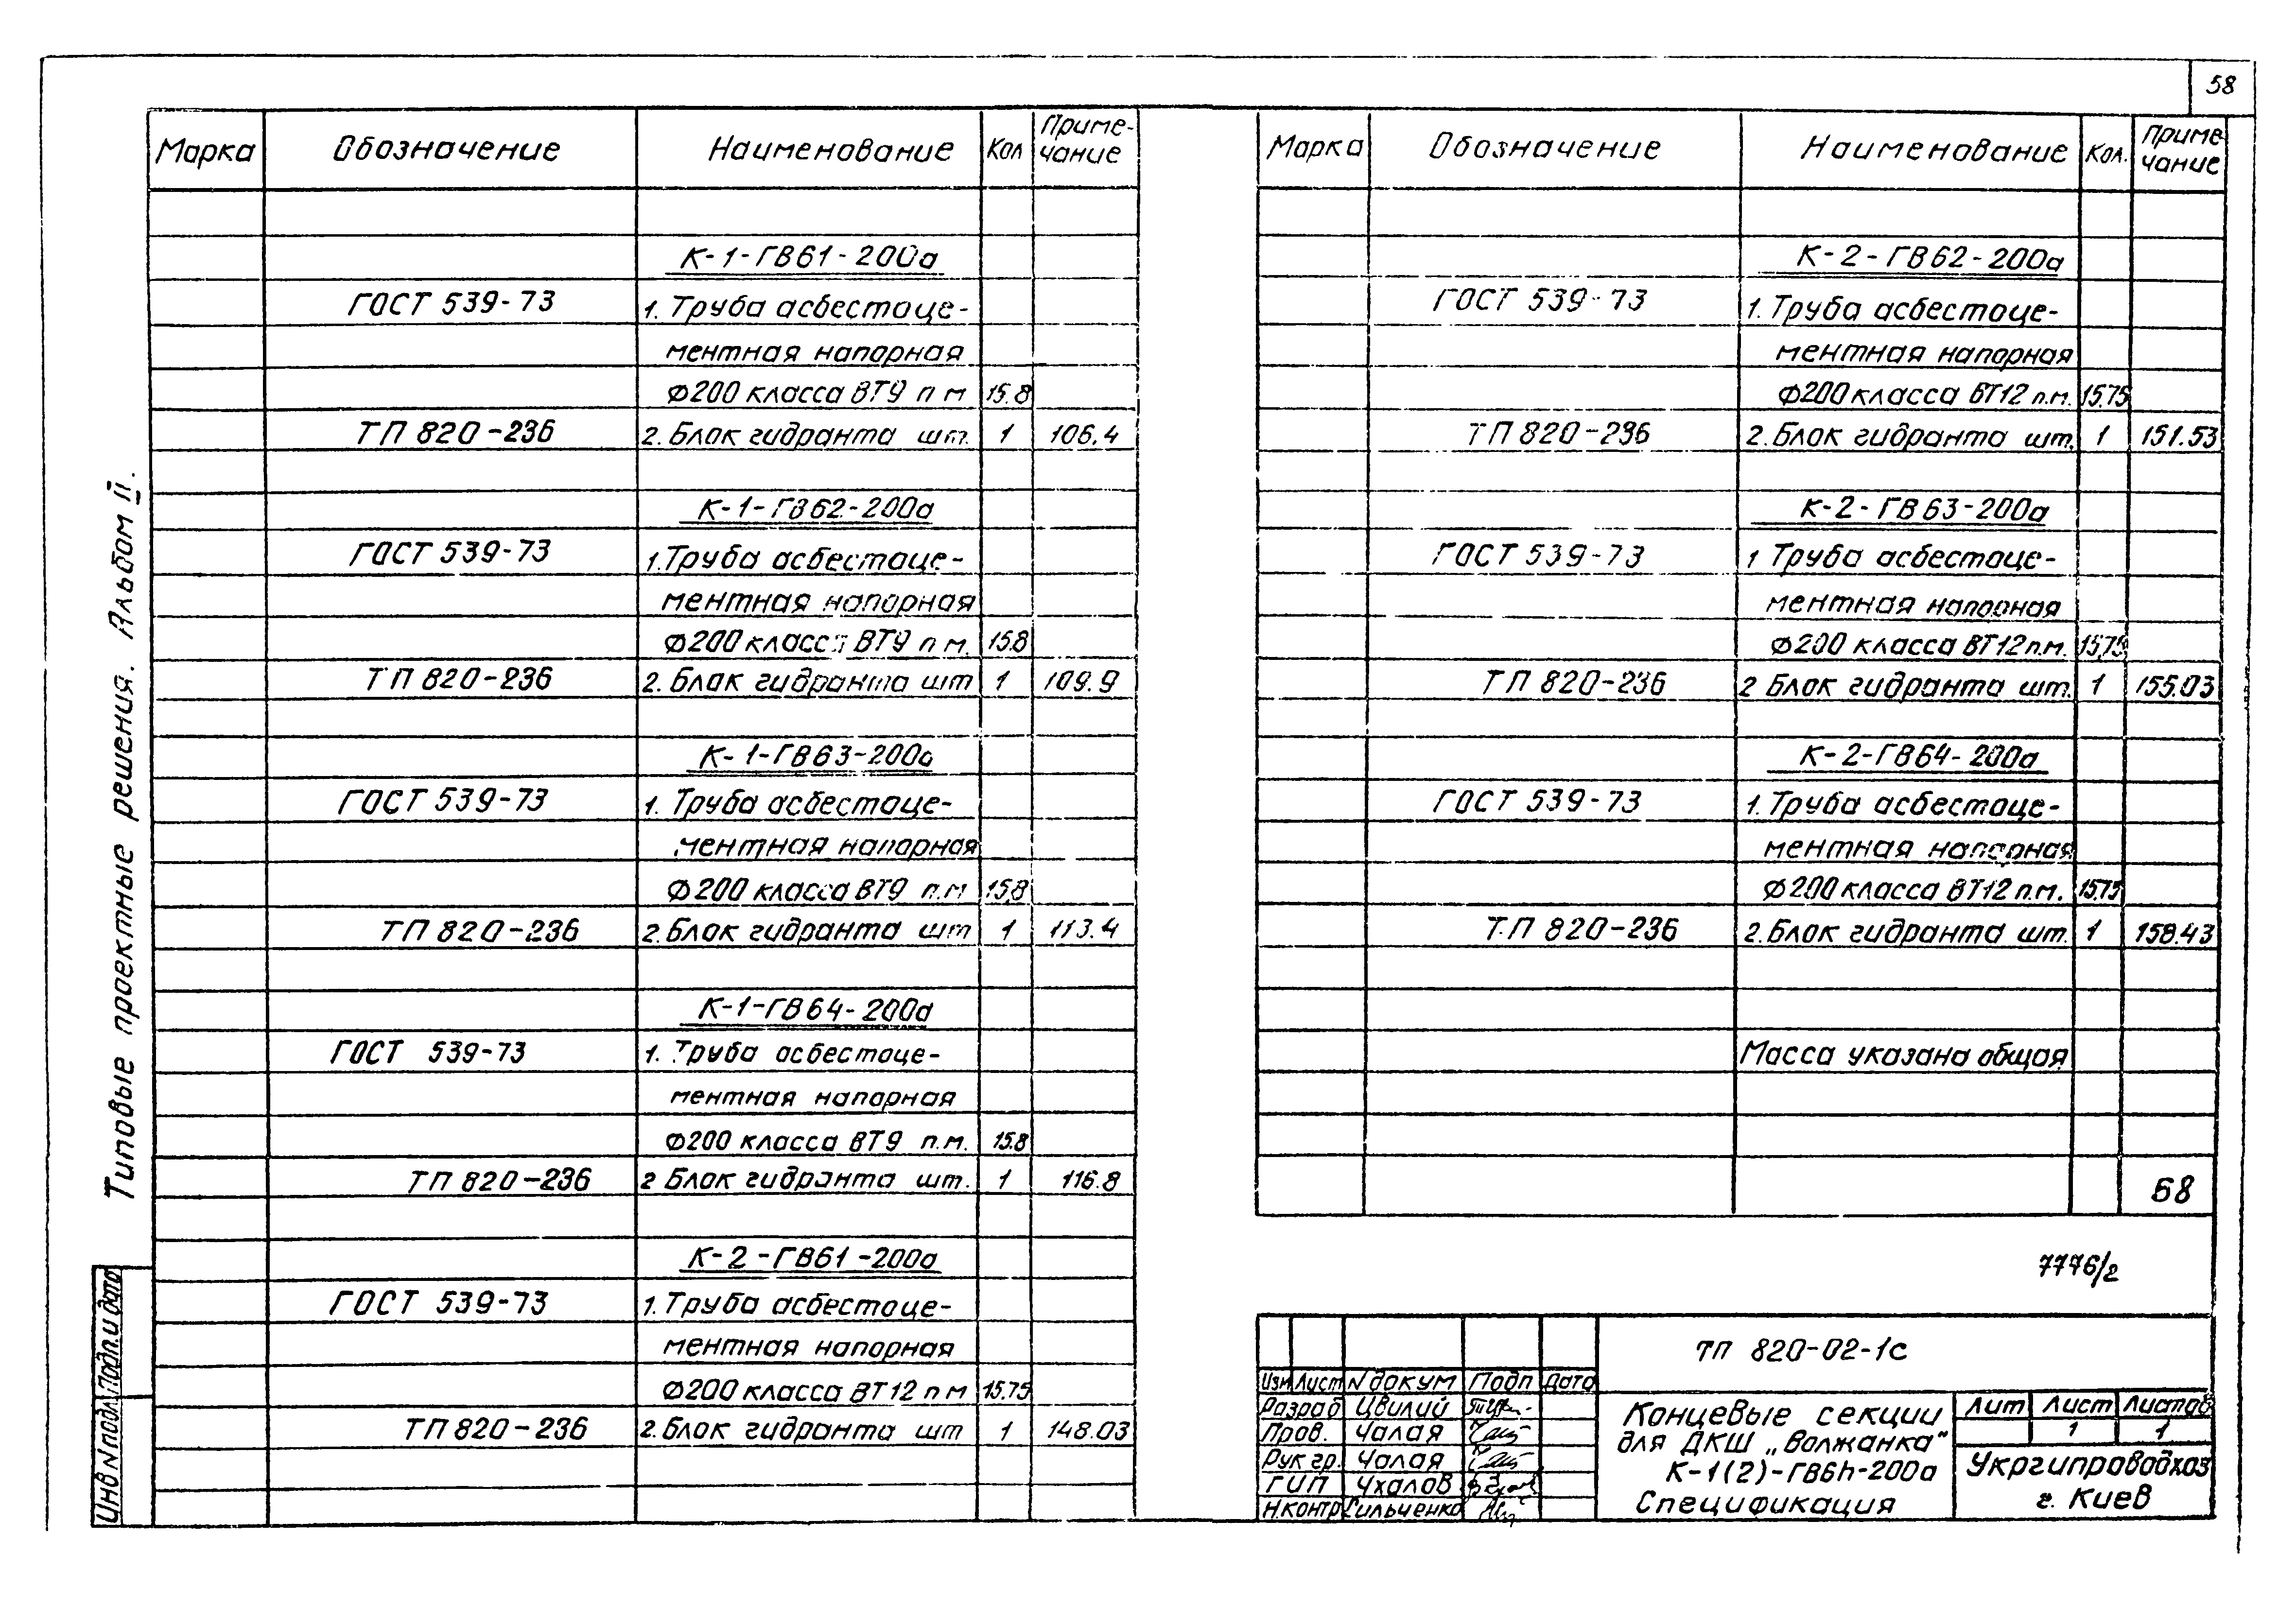 58
Типовые проектные решения. Альбом II.
Инв N подл. Подп. и дата
Марка Обозначение Наименование Кол Приме-
чание
К-1-ГВ61-200а
ГОСТ 539-73 1. Труба асбестоце-
ментная напорная
Ф200 класса ВТ9 п м 15.8
ТП 820-236 2. Блок гидранта шт. 1 106.4
К-1-ГВ62-200а
ГОСТ 539-73 1. Труба асбестоце-
ментная напорная
Ф200 класса ВТ9 п м. 15.8
ТП 820-236 2. Блок гидранта шт 1 109.9
К-1-ГВ63-200а
ГОСТ 539-73 1. Труба асбестоце-
ментная напорная
Ф200 класса ВТ9 п.м 15,8
ТП 820-236 2. Блок гидранта шт 1 113.4
К-1-ГВ64-200а
ГОСТ 539-73 1. Труба асбестоце-
ментная напорная
Ф200 класса ВТ9 п.м. 15.8
ТП 820-236 2 Блок гидранта шт. 1 116.8
К-2-ГВ61-200а
ГОСТ 539-73 1. Труба асбестоце-
ментная напорная
Ф200 класса ВТ12 п м 15.75
ТП 820-236 2. Блок гидранта шт 1 148.03
Марка Обозначение Наименование Кол. Приме-
чание
К-2-ГВ62-200а
ГОСТ 539-73 1. Труба асбестоце-
ментная напорная
Ф200 класса ВТ12 п.м. 15.75
ТП 820-236 2. Блок гидранта шт. 1 151.53
К-2-ГВ63-200а
ГОСТ 539-73 1 Труба асбестоце-
ментная напорная
Ф200 класса ВТ12 п.м. 15,75
ТП 820-236 2 Блок гидранта шт. 1 155.03
К-2-ГВ64-200а
ГОСТ 539-73 1. Труба асбестоце-
ментная напорная
Ф200 класса ВТ12 п.м. 15.75
Т.П 820-236 2. Блок гидранта шт. 1 158.43
Масса указана общая
58
7776/2
ТП 820-02-1с
Изм Лист N докум Подп Дата
Разраб Цвилий
Пров. Чалая
Рук гр. Чалая
ГИП Чхалов
Н.контр Сильченко
Концевые секции
для ДКШ „Волжанка“
К-1(2)-ГВ6h-200а
Спецификация
Лит Лист Листов
1 1
Укргипроводхоз
г. Киев